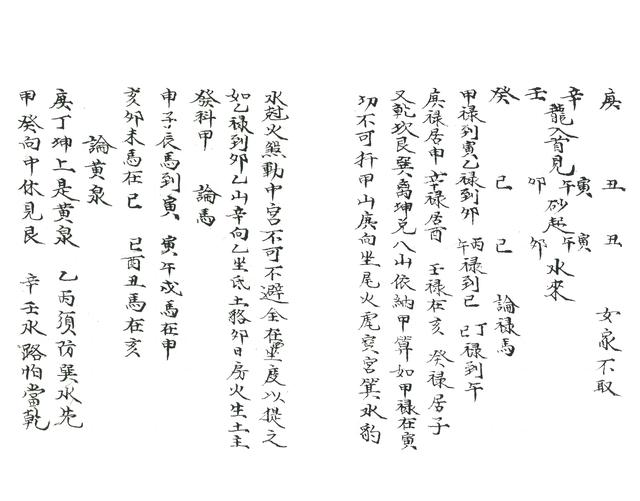 女家不取
庚 丑 丑
辛 寅午 寅午
龍入首見 砂起 水來
壬 卯 卯
癸 巳 巳 論祿馬
甲祿到寅乙祿到卯 丙午祿到巳 丁巳祿到午
庚祿居申辛祿居酉 壬祿在亥 癸祿居子
又乾坎艮巽離坤兌八山依納甲算如甲祿在寅
切不可扦甲山庚向坐尾火虎寅宮箕水豹
水尅火煞動中宮不可不避全在坐度以提之
如乙祿到卯乙山辛向乙坐氐土貉卯日房火生土主
發科甲 論馬
申子辰馬到寅 寅午戌馬在申
亥卯未馬在巳 巳酉丑馬在亥
論黃泉
庚丁坤上是黃泉 乙丙須防巽水先
甲癸向中休見艮 辛壬水路怕當乾